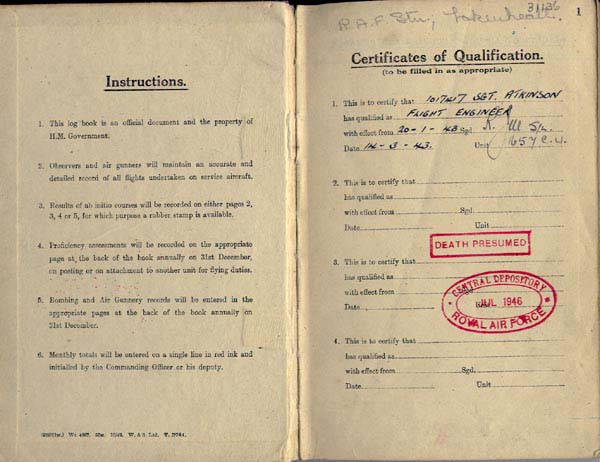 Instructions.
1. This log book is an official document and the property of
H.M. Government.
2. Observers and air gunners will maintain an accurate and
detailed record of all flights undertaken on service aircraft.
3. Results of ab initio courses will be recorded on either pages 2,
3, 4 or 5, for which purpose a rubber stamp is available.
4. Proficiency assessments will be recorded on the appropriate
page at the back of the book annually on 31st December,
on posting or on attachment to another unit for flying duties.
5. Bombing and Air Gunnery records will be entered in the
appropriate pages at the back of the book annually on
31st December.
6. Monthly totals will be entered on a single line in red ink and
initialled by the Commanding Officer or his deputy.
R.A.F. Stn, Lakenheath.
1
Certificates of Qualification.
(to be filled in as appropriate)
1. This is to certify that 1017417 SGT. ATKINSON
has qualified as FLIGHT ENGINEER
with effect from 20-1-43 Sgd. S/L.
Date 14-3-43. Unit 1657 C.U.
2. This is to certify that
has qualified as
with effect from Sgd.
Date Unit
DEATH PRESUMED
3. This is to certify that
has qualified as
with effect from Sgd.
Date Unit
CENTRAL DEPOSITORY
JUL 1946
ROYAL AIR FORCE
4. This is to certify that
has qualified as
with effect from Sgd.
Date Unit